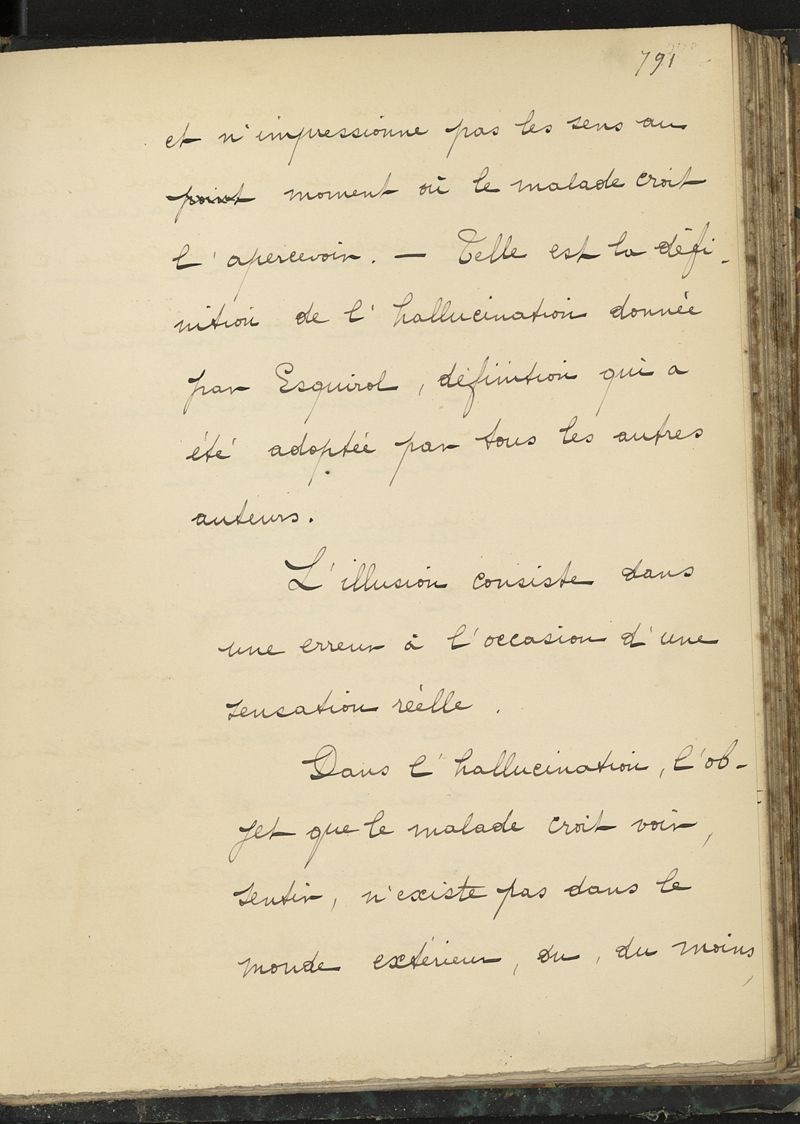 791
et n'impressionne pas les sens au
point moment où le malade croit
l'apercevoir. — Telle est la défi-
nition de l'hallucination donnée
par Esquirol, définition qui a
été adoptée par tous les autres
auteurs.
L'illusion consiste dans
une erreur à l'occasion d'une
sensation réelle.
Dans l'hallucination, l'ob-
jet que le malade croit voir,
sentir, n'existe pas dans le
monde extérieur, ou, du moins,